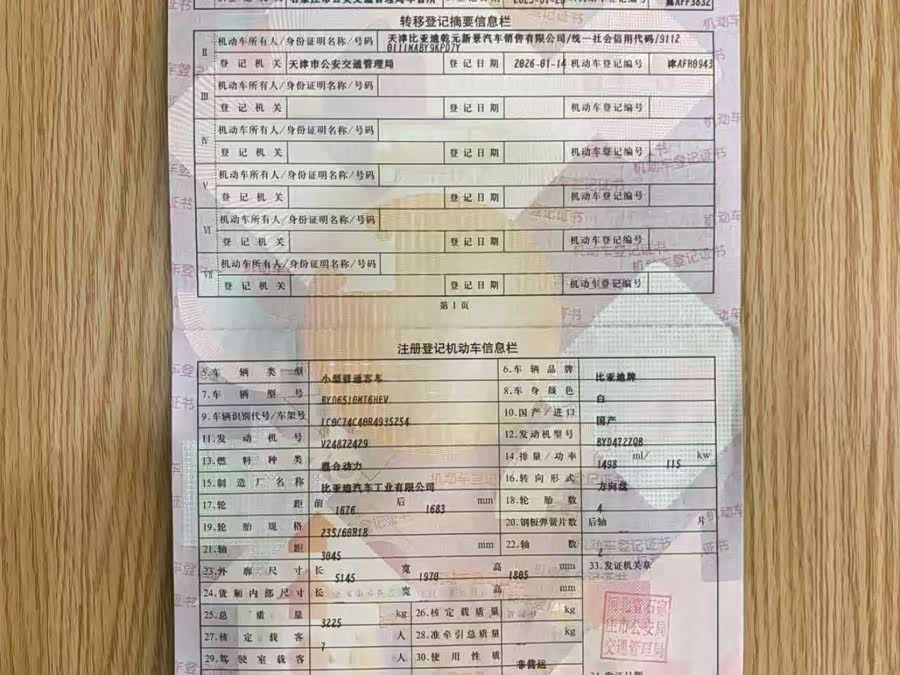 转移登记摘要信息栏
Ⅱ 机动车所有人/身份证明名称/号码 天津比亚迪乾元新景汽车销售有限公司/统一社会信用代码/9112
0111MABY9KPD7Y
登记机关 天津市公安交通管理局 登记日期 2026-01-14 机动车登记编号 津AFH0943
Ⅲ 机动车所有人/身份证明名称/号码
登记机关 登记日期 机动车登记编号
Ⅳ 机动车所有人/身份证明名称/号码
登记机关 登记日期 机动车登记编号
Ⅴ 机动车所有人/身份证明名称/号码
登记机关 登记日期 机动车登记编号
Ⅵ 机动车所有人/身份证明名称/号码
登记机关 登记日期 机动车登记编号
Ⅶ 机动车所有人/身份证明名称/号码
登记机关 登记日期 机动车登记编号
第1页
注册登记机动车信息栏
5.车辆类型 小型普通客车 6.车辆品牌 比亚迪牌
7.车辆型号 BYD6510MT6HEV 8.车身颜色 白
9.车辆识别代号/车架号 LC0C74C40R4935254 10.国产/进口 国产
11.发动机号 V24872429 12.发动机型号 BYD472ZQB
13.燃料种类 混合动力 14.排量/功率 1498 ml/ 115 kw
15.制造厂名称 比亚迪汽车工业有限公司 16.转向形式 方向盘
17.轮距 前 1676 后 1683 mm 18.轮胎数 4
19.轮胎规格 235/60R18 20.钢板弹簧片数 后轴 片
21.轴距 3045 mm 22.轴数 2
23.外廓尺寸 长 5145 宽 1970 高 1805 mm 33.发证机关章
24.货厢内部尺寸 长 宽 高 mm
25.总质量 3225 kg 26.核定载质量 kg
27.核定载客 7 人 28.准牵引总质量 kg
29.驾驶室载客 人 30.使用性质 非营运
河北省石家
庄市公安局
交通管理局